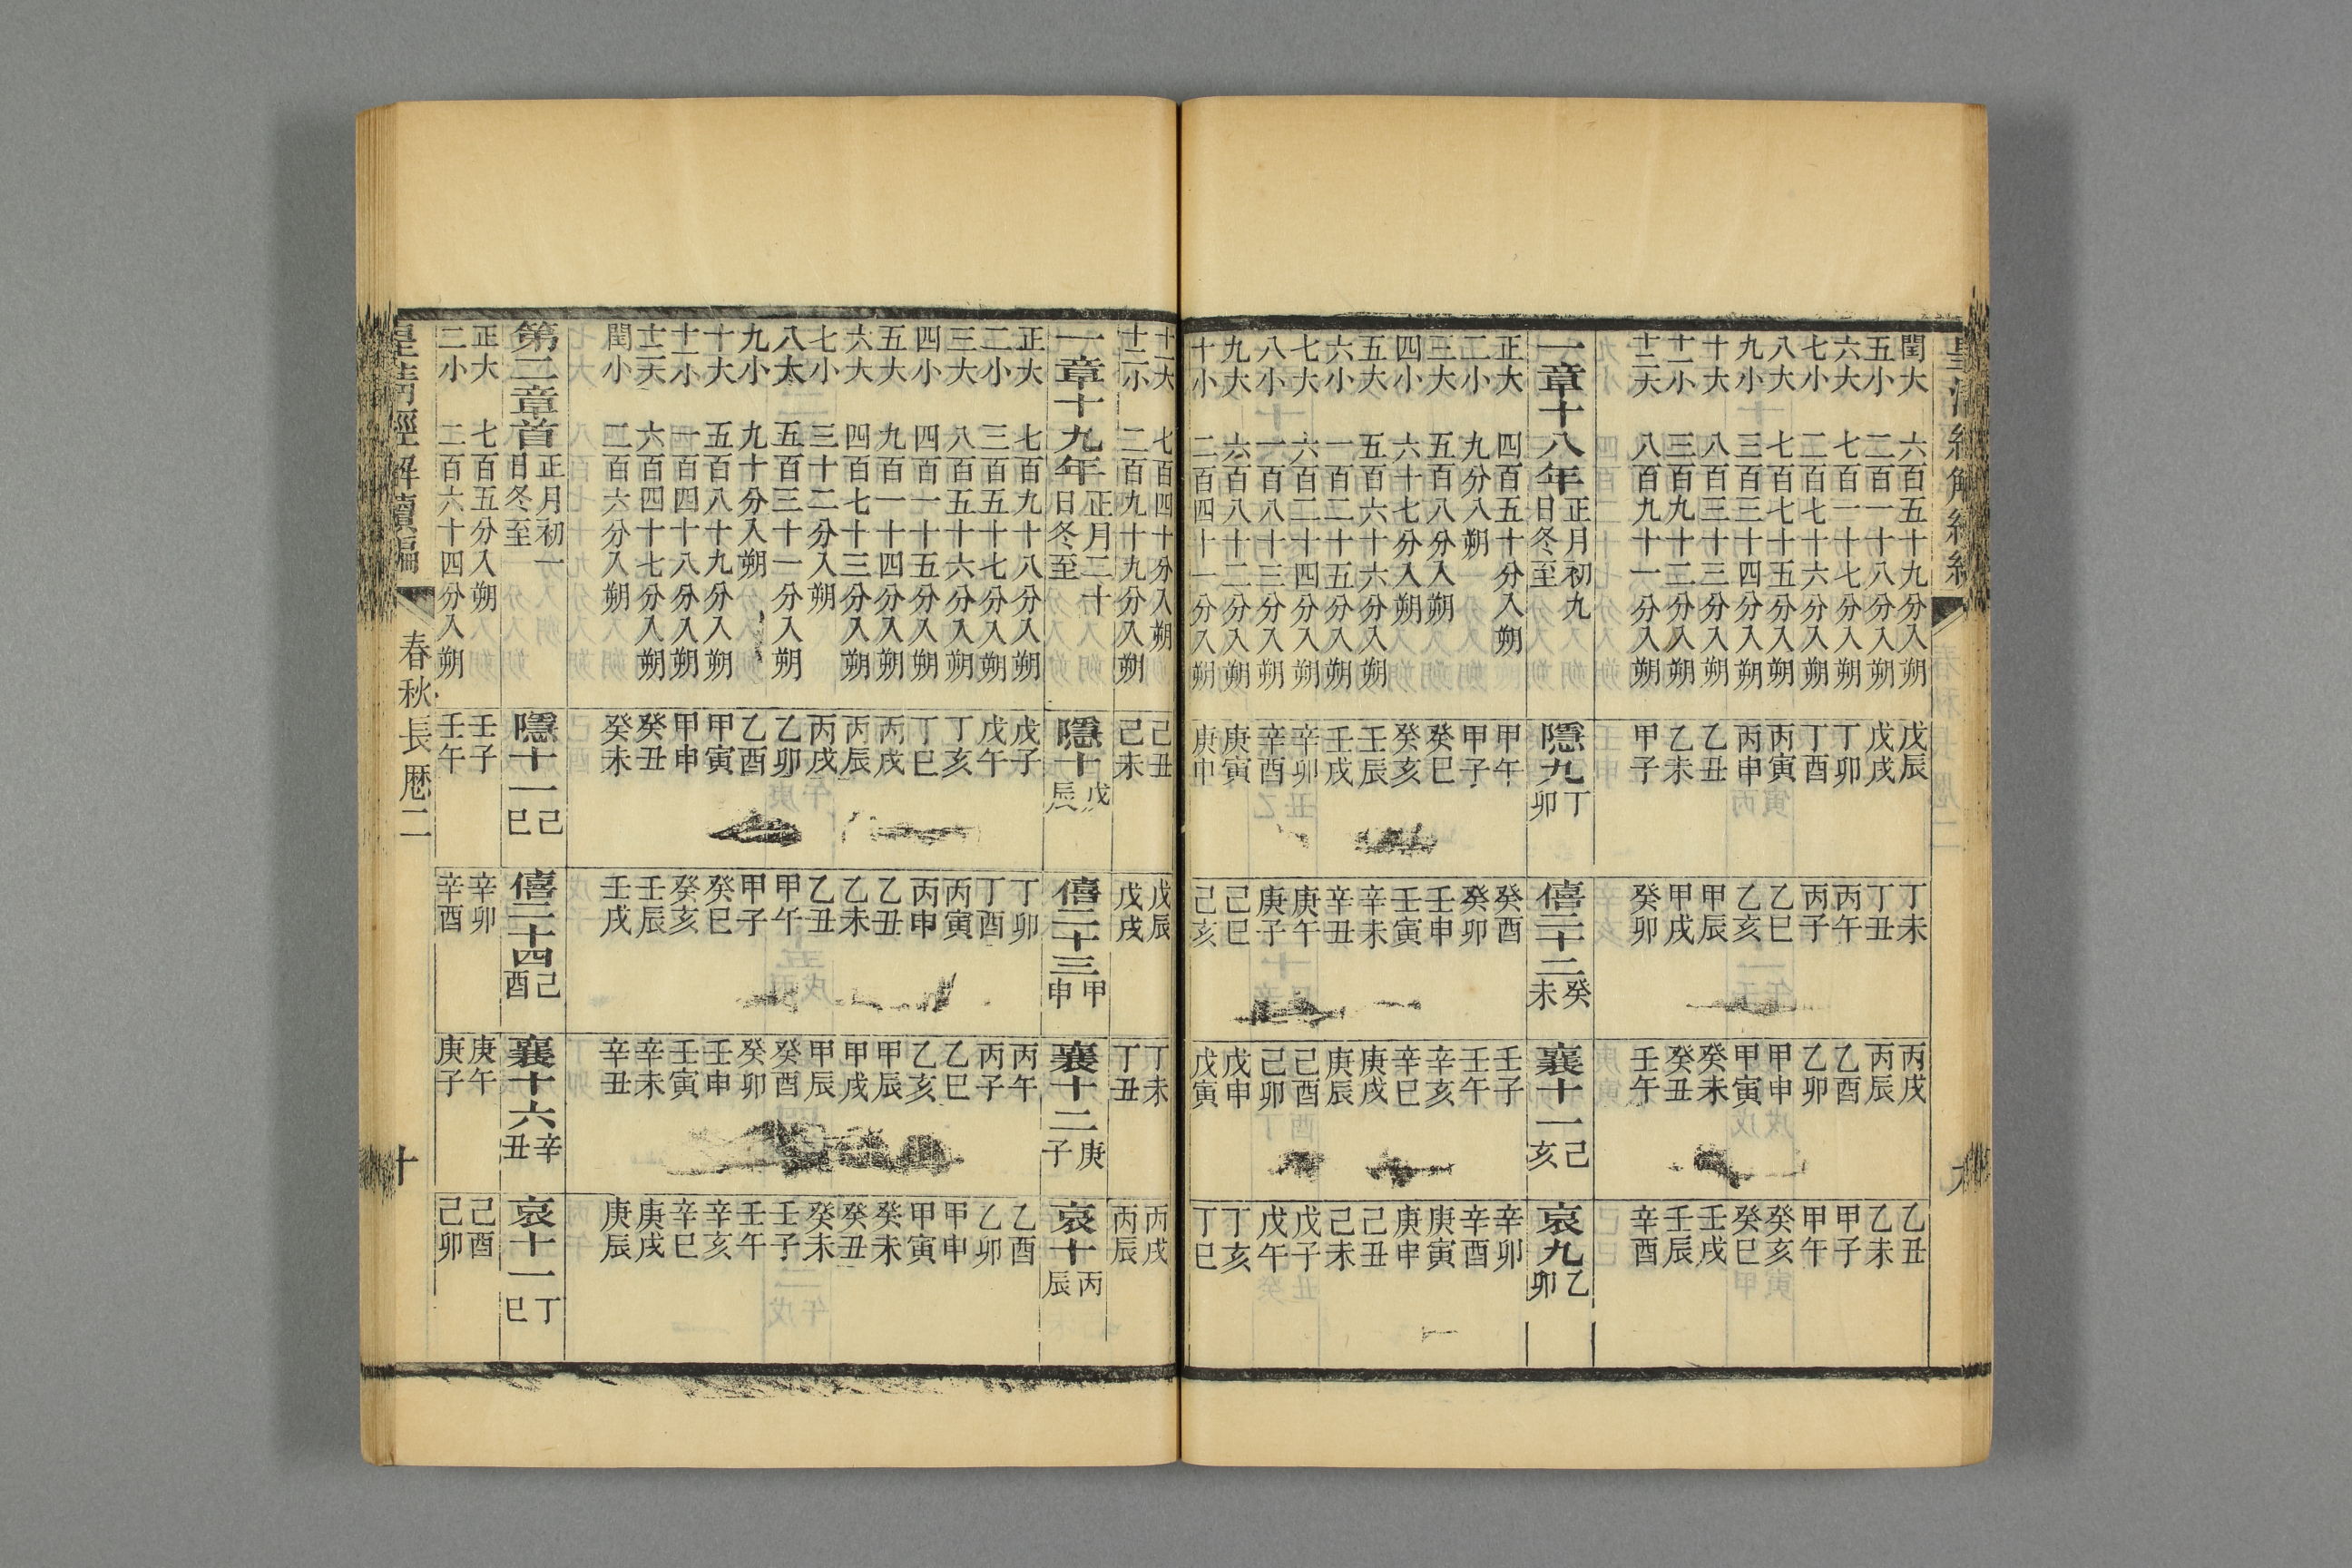 閏大 六百五十九分入朔 戊辰 丁未 丙戌 乙丑
五小 二百一十八分入朔 戊戌 丁丑 丙辰 乙未
六大 七百一十七分入朔 丁卯 丙午 乙酉 甲子
七小 二百七十六分入朔 丁酉 丙子 乙卯 甲午
八大 七百七十五分入朔 丙寅 乙巳 甲申 癸亥
九小 三百三十四分入朔 丙申 乙亥 甲寅 癸巳
十大 八百三十三分入朔 乙丑 甲辰 癸未 壬戌
十一小 三百九十二分入朔 乙未 甲戌 癸丑 壬辰
十二大 八百九十一分入朔 甲子 癸卯 壬午 辛酉
一章十八年 正月初九日冬至 隱九 丁卯 僖二十二 癸未 襄十一 己亥 哀九 乙卯
正大 四百五十分入朔 甲午 癸酉 壬子 辛卯
二小 九分入朔 甲子 癸卯 壬午 辛酉
三大 五百八分入朔 癸巳 壬申 辛亥 庚寅
四小 六十七分入朔 癸亥 壬寅 辛巳 庚申
五大 五百六十六分入朔 壬辰 辛未 庚戌 己丑
六小 一百二十五分入朔 壬戌 辛丑 庚辰 己未
七大 六百二十四分入朔 辛卯 庚午 己酉 戊子
八小 一百八十三分入朔 辛酉 庚子 己卯 戊午
九大 六百八十二分入朔 庚寅 己巳 戊申 丁亥
十小 二百四十一分入朔 庚申 己亥 戊寅 丁巳
十一大 七百四十分入朔 己丑 戊辰 丁未 丙戌
十二小 二百九十九分入朔 己未 戊戌 丁丑 丙辰
一章十九年 正月二十日冬至 隱十 戊辰 僖二十三 甲申 襄十二 庚子 哀十 丙辰
正大 七百九十八分入朔 戊子 丁卯 丙午 乙酉
二小 三百五十七分入朔 戊午 丁酉 丙子 乙卯
三大 八百五十六分入朔 丁亥 丙寅 乙巳 甲申
四小 四百一十五分入朔 丁巳 丙申 乙亥 甲寅
五大 九百一十四分入朔 丙戌 乙丑 甲辰 癸未
六大 四百七十三分入朔 丙辰 乙未 甲戌 癸丑
七小 三十二分入朔 丙戌 乙丑 甲辰 癸未
八大 五百三十一分入朔 乙卯 甲午 癸酉 壬子
九小 九十分入朔 乙酉 甲子 癸卯 壬午
十大 五百八十九分入朔 甲寅 癸巳 壬申 辛亥
十一小 一百四十八分入朔 甲申 癸亥 壬寅 辛巳
十二大 六百四十七分入朔 癸丑 壬辰 辛未 庚戌
閏小 二百六分入朔 癸未 壬戌 辛丑 庚辰
第二章首 正月初一日冬至 隱十一 己巳 僖二十四 己酉 襄十六 辛丑 哀十一 丁巳
正大 七百五分入朔 壬子 辛卯 庚午 己酉
二小 二百六十四分入朔 壬午 辛酉 庚子 己卯
皇清經解續編 春秋長歷二 十